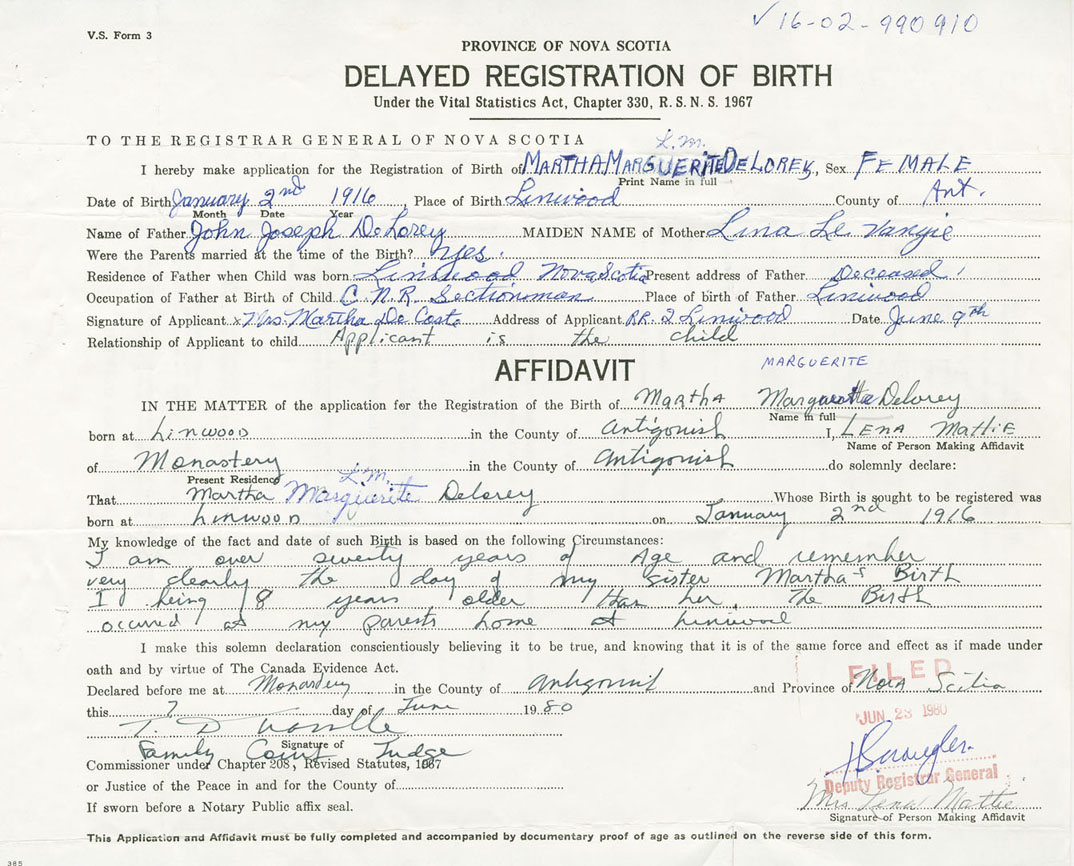 ✓16-02-990910
V.S. Form 3
PROVINCE OF NOVA SCOTIA
DELAYED REGISTRATION OF BIRTH
Under the Vital Statistics Act, Chapter 330, R. S. N. S. 1967
TO THE REGISTRAR GENERAL OF NOVA SCOTIA
L.M.
I hereby make application for the Registration of Birth of MARTHA MARGUERITE DELOREY, Sex FEMALE
Print Name in full
Date of Birth January 2nd 1916, Place of Birth Linwood County of Ant.
Month Date Year
Name of Father John Joseph DeLorey MAIDEN NAME of Mother Lina Le Vangie
Were the Parents married at the time of the Birth? Yes.
Residence of Father when Child was born Linwood Nova Scotia Present address of Father Deceased
Occupation of Father at Birth of Child C.N.R. Sectionman Place of birth of Father Linwood
Signature of Applicant x Mrs. Martha De Coste Address of Applicant RR. 2 Linwood Date June 9th
Relationship of Applicant to child Applicant is the child
AFFIDAVIT
MARGUERITE
IN THE MATTER of the application for the Registration of the Birth of Martha Marguerite Delorey
Name in full
born at Linwood in the County of Antigonish I, LENA MATTIE
Name of Person Making Affidavit
of Monastery in the County of Antigonish do solemnly declare:
Present Residence
L.M.
That Martha Marguerite Delorey Whose Birth is sought to be registered was
born at Linwood on January 2nd 1916
My knowledge of the fact and date of such Birth is based on the following Circumstances:
I am over seventy years of Age and remember
very clearly the day of my sister Martha's Birth
I being 8 years older than her. The Birth
occured at my parents home at Linwood
I make this solemn declaration conscientiously believing it to be true, and knowing that it is of the same force and effect as if made under
oath and by virtue of The Canada Evidence Act.
FILED
Declared before me at Monastery in the County of Antigonish and Province of Nova Scotia
this 7 day of June 1980
JUN 23 1980
T. D
Signature of
Family Court Judge
Commissioner under Chapter 208, Revised Statutes, 1967
Deputy Registrar General
or Justice of the Peace in and for the County of
Mrs Lena Mattie
If sworn before a Notary Public affix seal.
Signature of Person Making Affidavit
This Application and Affidavit must be fully completed and accompanied by documentary proof of age as outlined on the reverse side of this form.
385